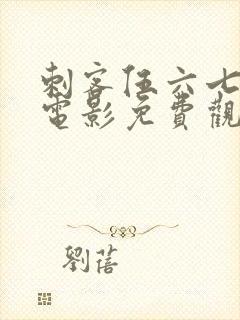 刺客伍六七
電影免費觀
劉蓓